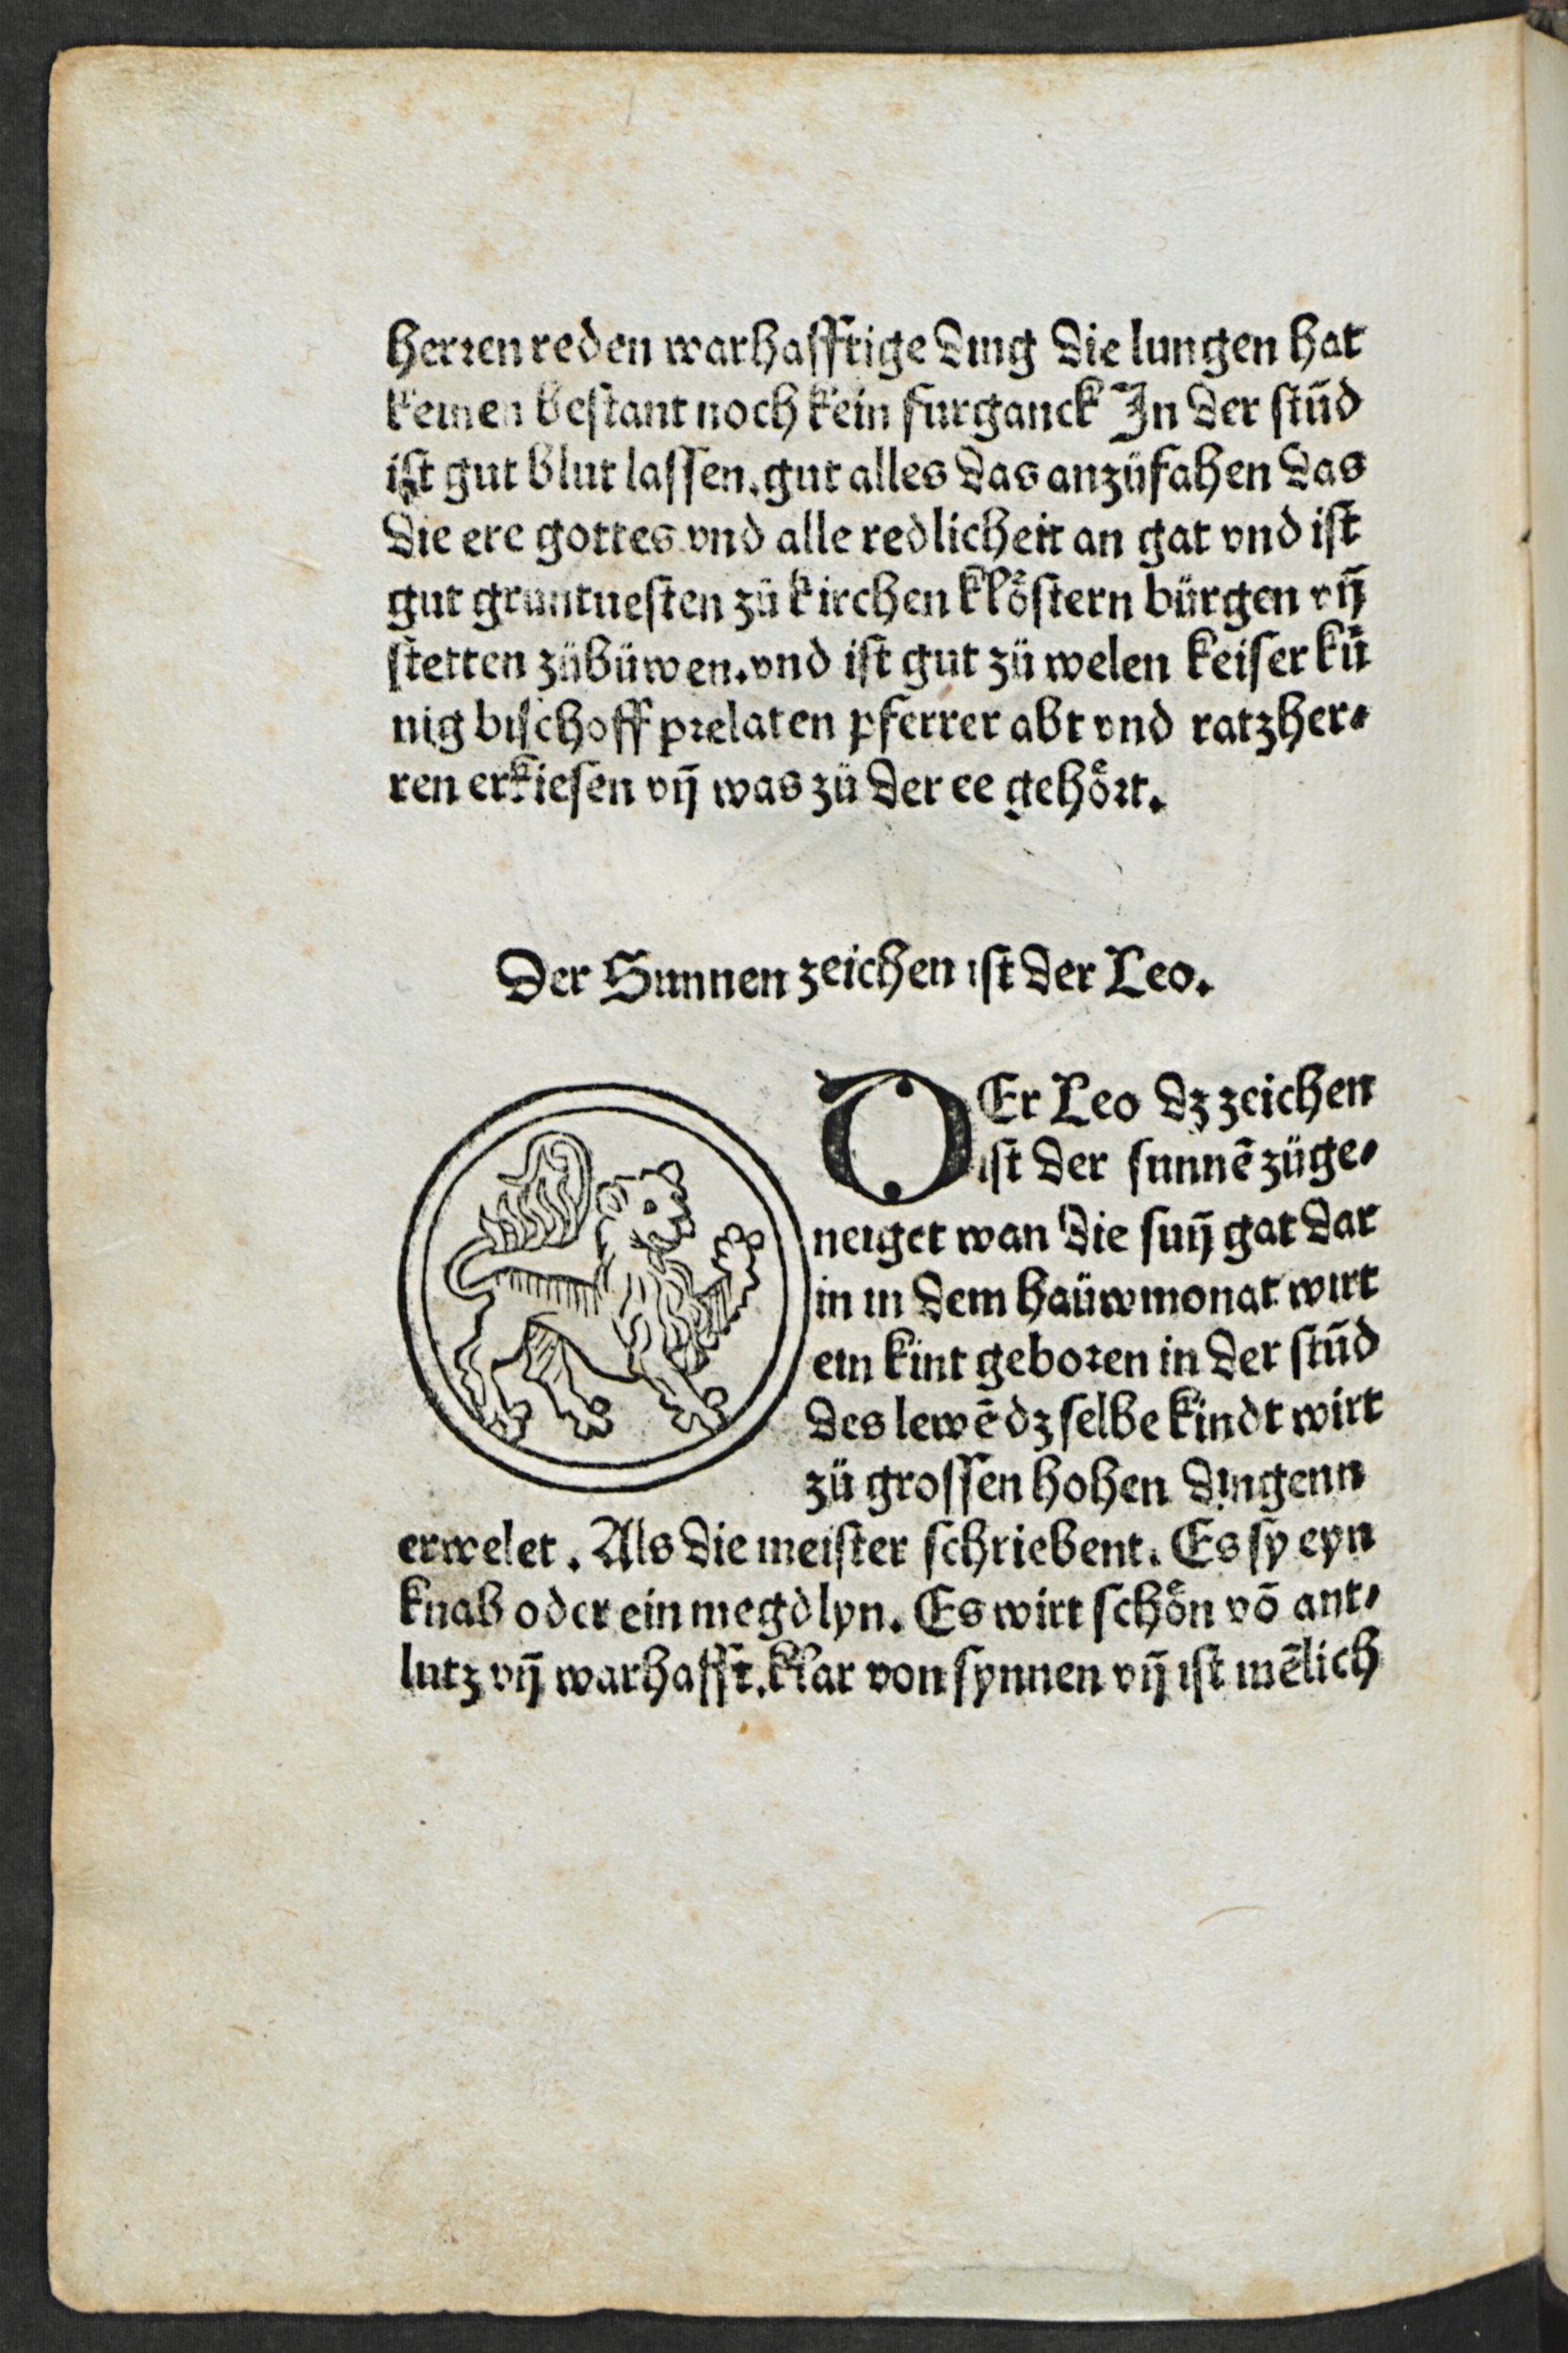 herren reden warhafftige ding die lungen hat
keinen bestant noch kein furganck In der stūd
ist gut blut lassen. gut alles das anzüfahen das
die ere gottes vnd alle redlicheit an gat vnd ist
gut gruntuesten zü kirchen klöstern bürgen vn̄
stetten zübüwen. vnd ist gut zü welen keiser kü
nig bischoff prelaten pferrer abt vnd ratzher⸗
ren erkiesen vn̄ was zü der ee gehört.
Der Sunnen zeichen ist der Leo.
DEr Leo dz zeichen
ist der sunnē züge⸗
neiget wan die sun̄ gat dar
in in dem haüwmonat wirt
ein kint geboren in der stūd
des lewē dz selbe kindt wirt
zü grossen hohen dingenn
erwelet. Als die meister schriebent. Es sy eyn
knab oder ein megdlyn. Es wirt schön vō ant⸗
lutz vn̄ warhafft. klar von synnen vn̄ ist mēlich